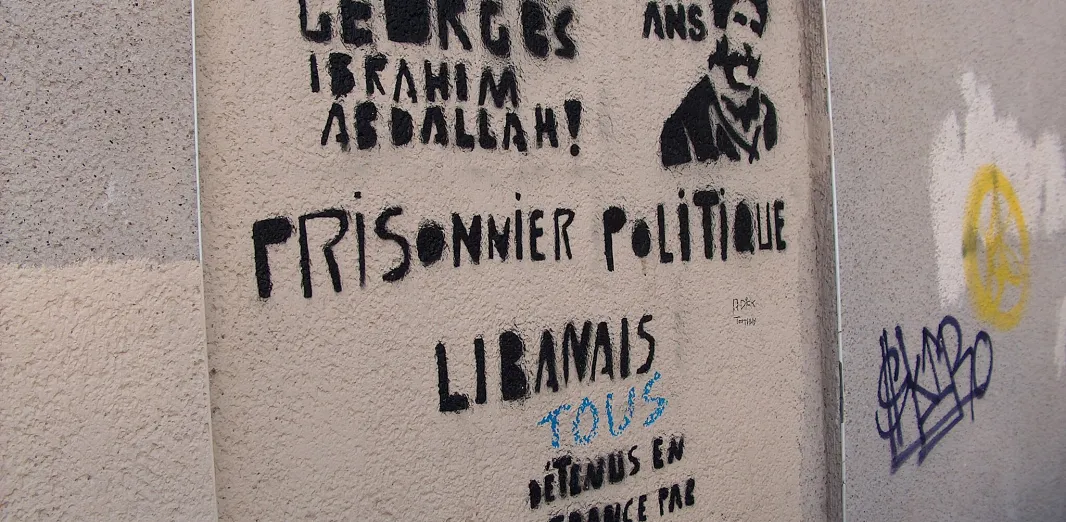 GEORGES
IBRAHIM
ABDALLAH!
ANS
PRISONNIER POLITIQUE
LIBANAIS
TOUS
DÉTENUS EN
FRANCE PAR